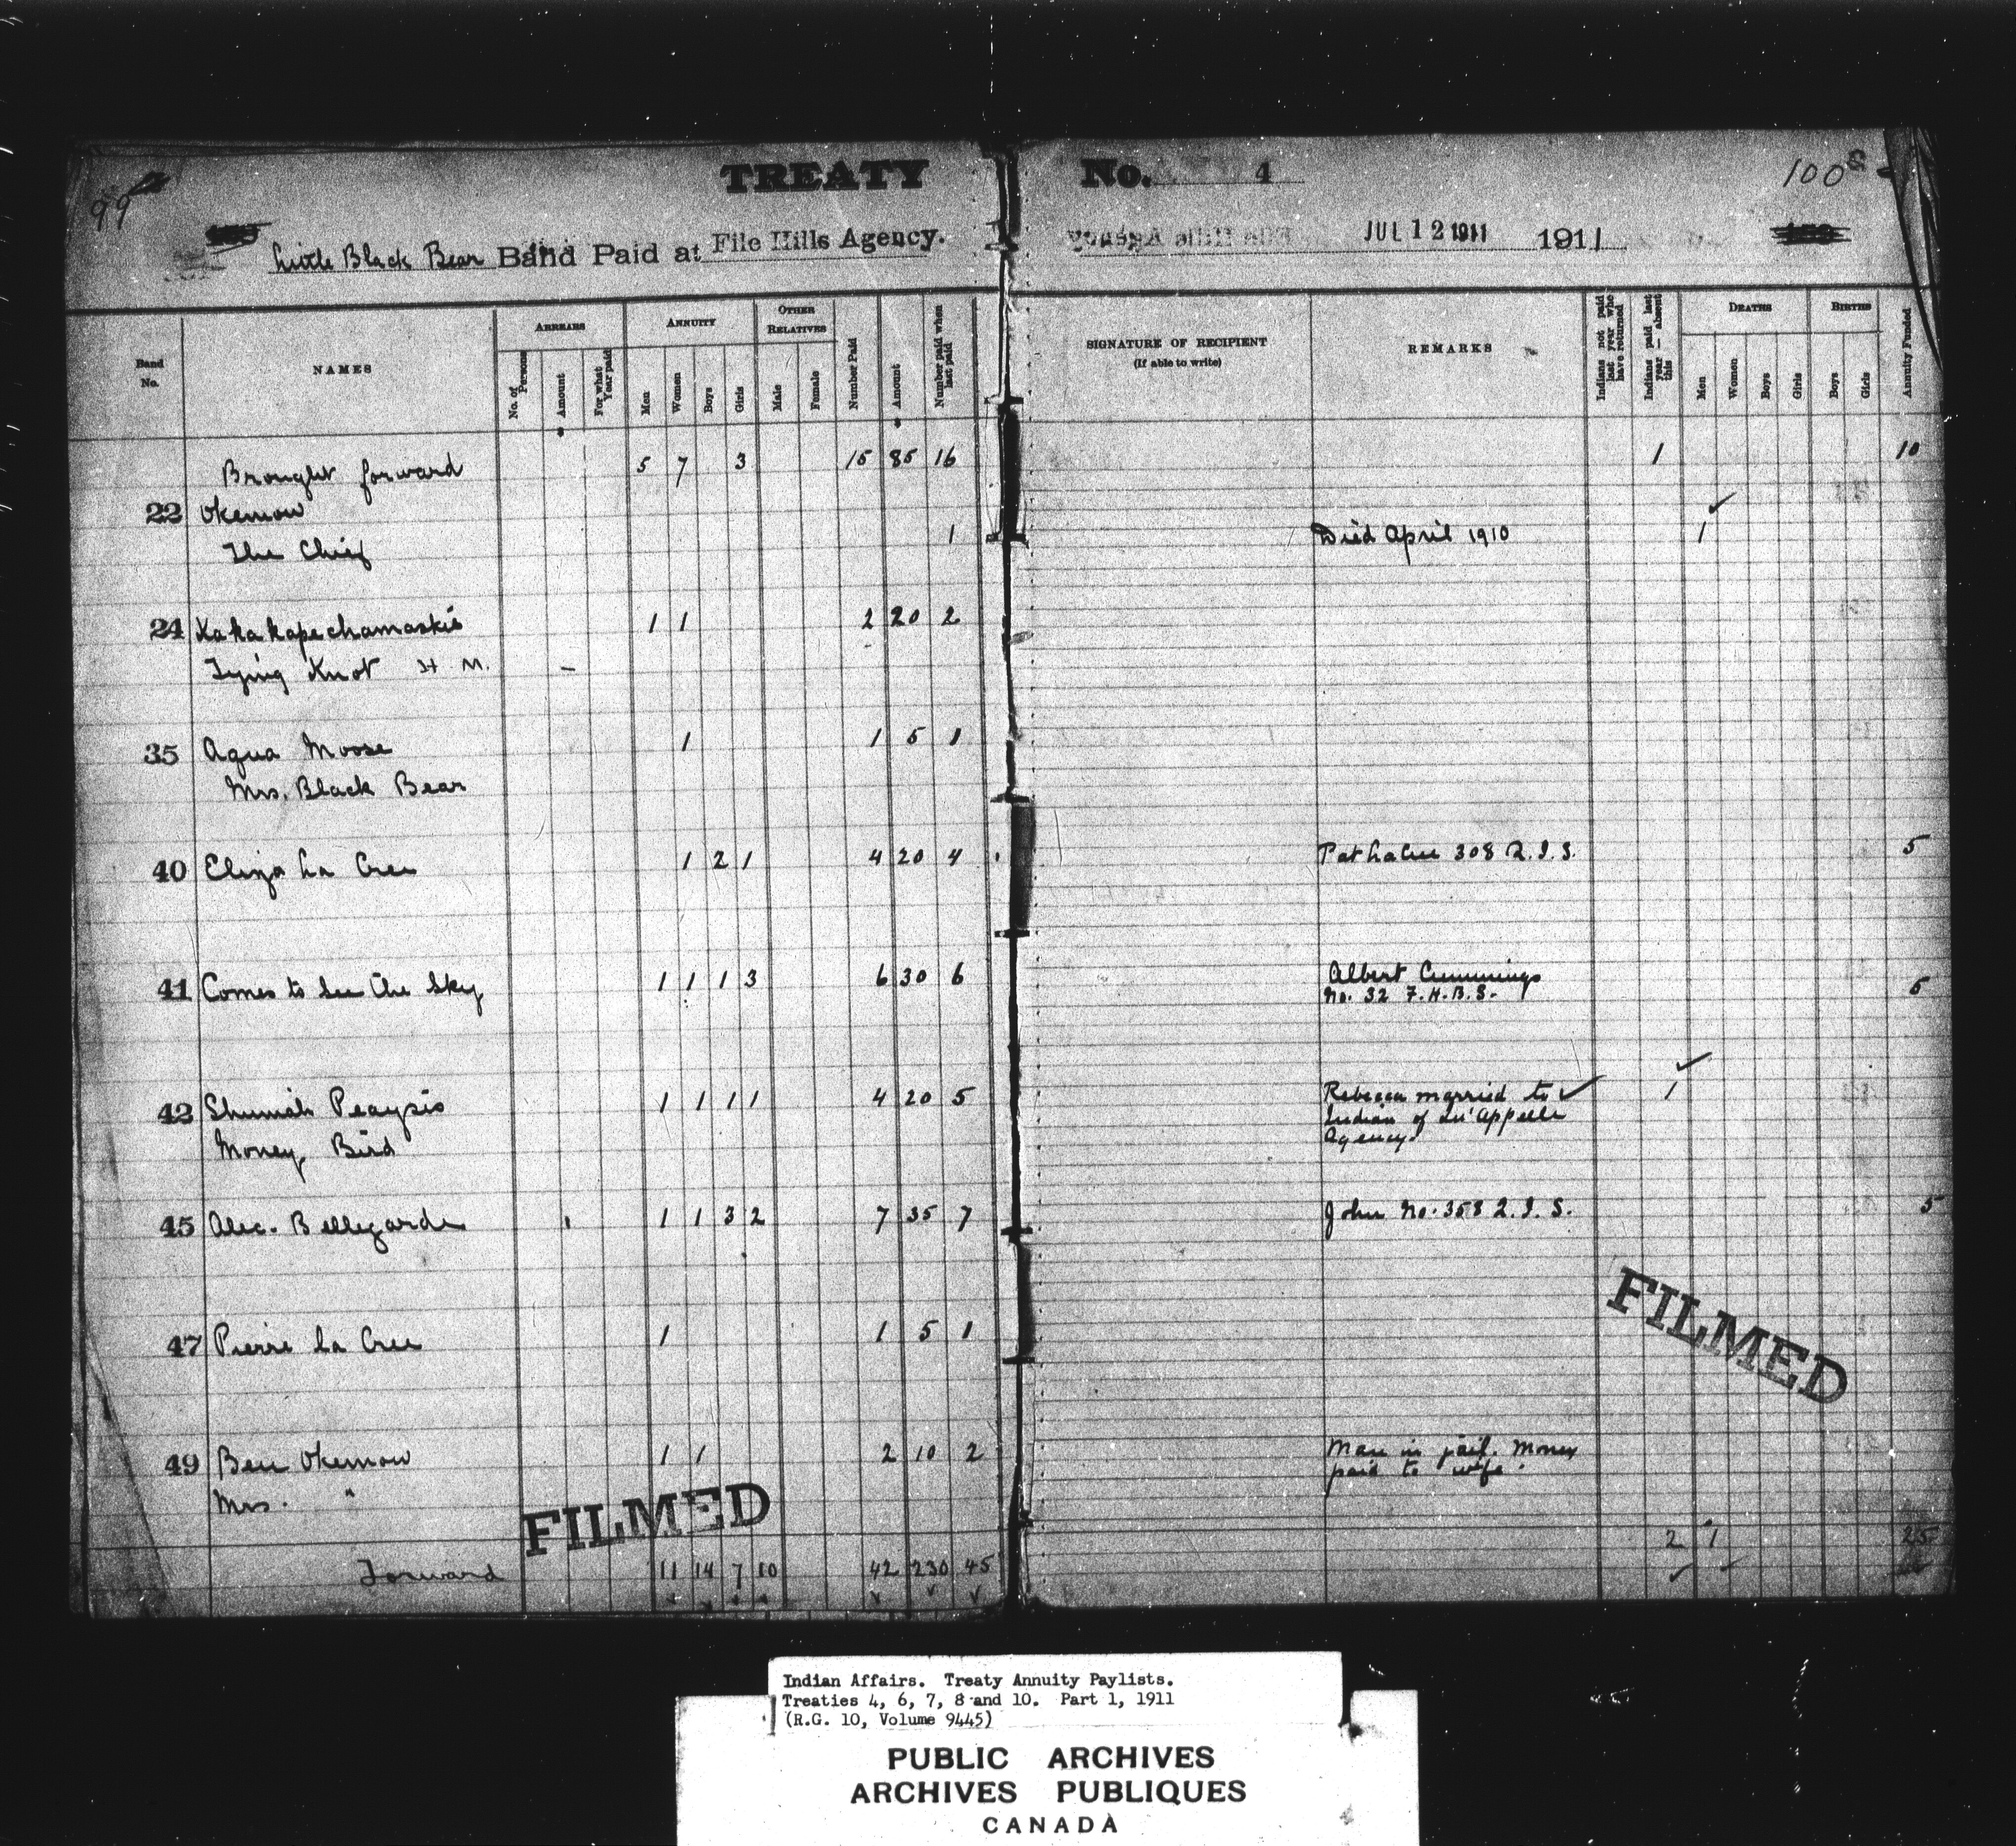 TREATY No. 4
99
100
Little Black Bear Band Paid at File Hills Agency. JUL 12 1911 1911
Band No. NAMES ARREARS ANNUITY OTHER RELATIVES Number Paid Amount Number paid when last paid SIGNATURE OF RECIPIENT (If able to write) REMARKS Indians not paid last year who have returned Indians paid last year — absent this DEATHS BIRTHS Annuity Funded
No. of Persons Amount For what Year paid Men Women Boys Girls Male Female Men Women Boys Girls Boys Girls
Brought forward 5 7 3 15 85 16 1 10
22 Okemow
The Chief 1 Died April 1910 1
24 Kakakapechamaskis 1 1 2 20 2
Tying Knot H M. –
35 Aqua Moose 1 1 5 1
Mrs. Black Bear
40 Eliza La Cree 1 2 1 4 20 4 Pat LaCree 308 Q.I.S. 5
41 Comes to See the Sky 1 1 1 3 6 30 6 Albert Cummings
No. 32 F.H.B.S. 5
42 Shumiah Peaysis 1 1 1 1 4 20 5 Rebecca married to 1
Money Bird Indian of Qu'Appelle
Agency.
45 Alec. Bellegarde 1 1 3 2 7 35 7 John No. 358 Q.I.S. 5
47 Pierre La Cree 1 1 5 1
49 Ben Okemow 1 1 2 10 2 Man in jail. Money
Mrs. " paid to wife.
FILMED
FILMED
2 1 25
Forward 11 14 7 10 42 230 45
Indian Affairs. Treaty Annuity Paylists.
Treaties 4, 6, 7, 8 and 10. Part 1, 1911
(R.G. 10, Volume 9445)
PUBLIC ARCHIVES
ARCHIVES PUBLIQUES
CANADA